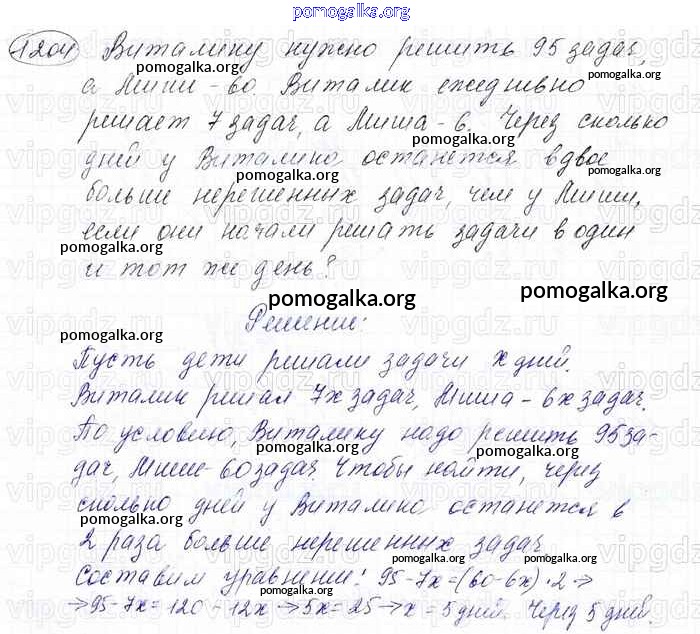 pomogalka.org
1204 Виталику нужно решить 95 задач,
pomogalka.org pomogalka.org
а Миши - 60. Виталик ежедневно
pomogalka.org
решает 7 задач, а Миша - 6. Через сколько
pomogalka.org
дней у Виталика останется вдвое
pomogalka.org
больше нерешенных задач, чем у Миши,
pomogalka.org
если они начали решать задачи в один
pomogalka.org pomogalka.org
и тот же день?
pomogalka.org pomogalka.org
Решение:
pomogalka.org
Пусть дети решали задачи x дней.
Виталик решал 7x задач, Миша - 6x задач.
pomogalka.org
По условию, Виталику надо решить 95 за-
pomogalka.org
дач, Миши - 60 задач. Чтобы найти, через
pomogalka.org
сколько дней у Виталика останется в
pomogalka.org
2 раза больше нерешенных задач
pomogalka.org pomogalka.org
Составим уравнение: 95-7x=(60-6x)·2 →
pomogalka.org
→ 95-7x=120-12x → 5x=25 → x=5 дней. Через 5 дней.
pomogalka.org pomogalka.org